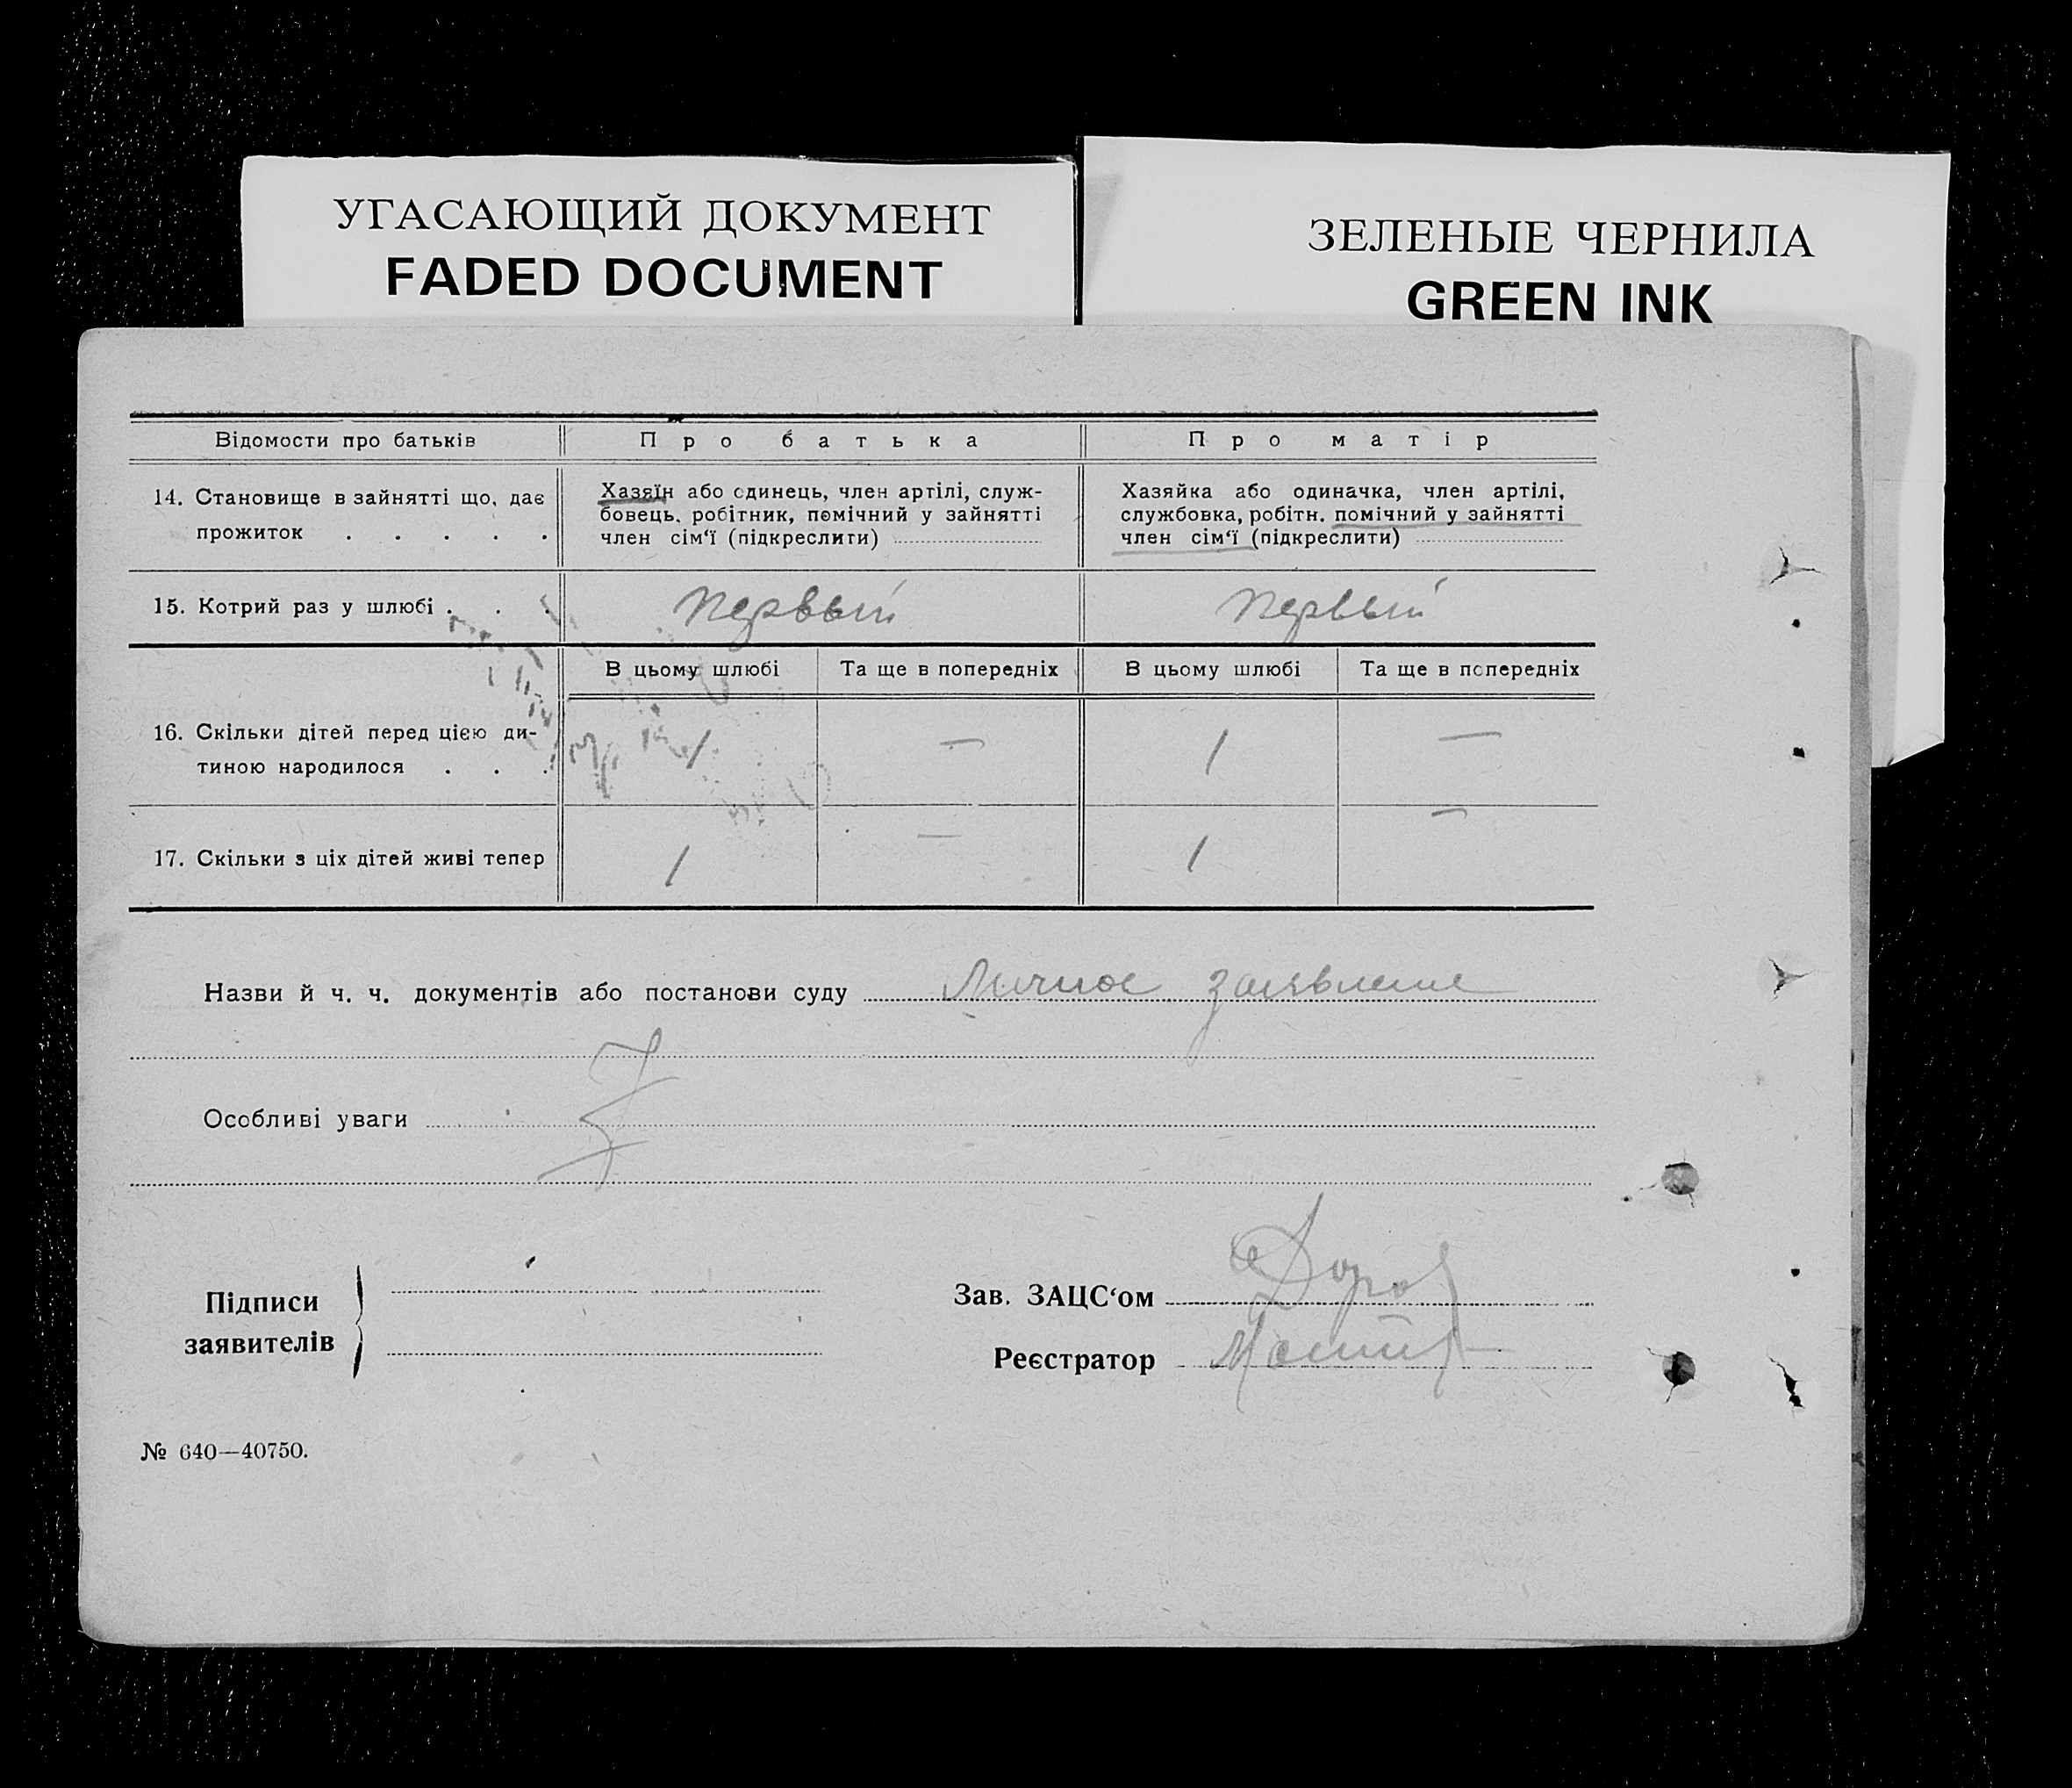 УГАСАЮЩИЙ ДОКУМЕНТ
FADED DOCUMENT
ЗЕЛЕНЫЕ ЧЕРНИЛА
GREEN INK
Відомости про батьків
Про батька
Про матір
14. Становище в зайнятті що, дає
прожиток . . . . .
Хазяїн або єдинець, член артілі, служ-
бовець, робітник, помічний у зайнятті
член сім‘ї (підкреслити)
Хазяйка або одиначка, член артілі,
службовка, робітн. помічний у зайнятті
член сім‘ї (підкреслити)
15. Котрий раз у шлюбі . . .
первый
первый
В цьому шлюбі
Та ще в попередніх
В цьому шлюбі
Та ще в попередніх
16. Скільки дітей перед цією ди-
тиною народилося . . .
1 — 1 —
17. Скільки з ціх дітей живі тепер
1 — 1 —
Назви й ч. ч. документів або постанови суду Личное заявление
Особливі уваги
Підписи
заявителів
Зав. ЗАЦС‘ом
Реєстратор
№ 640—40750.